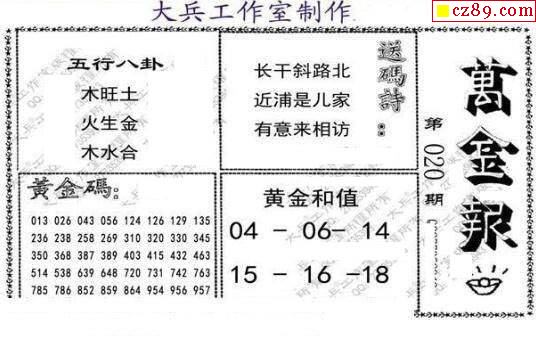 大兵工作室制作
cz89.com
五行八卦
木旺土
火生金
木水合
送碼詩:
长干斜路北
近浦是儿家
有意来相访
黃金碼:
013 026 043 056 124 126 129 135
236 238 258 269 310 320 330 345
350 368 387 389 403 415 432 463
514 538 639 648 720 731 742 763
785 786 852 859 864 954 956 957
黄金和值
04 - 06- 14
15 - 16 -18
萬金報
第020期